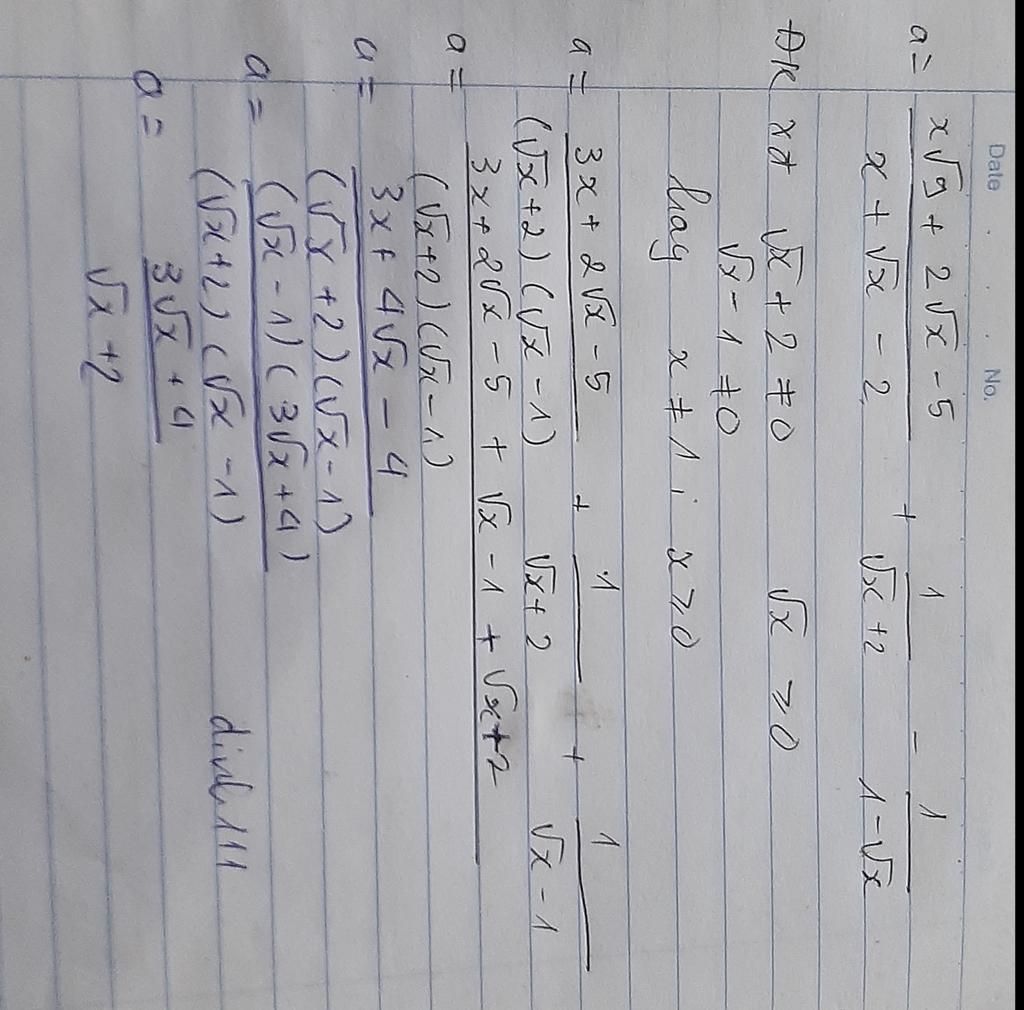 Date . . . No.
a = (x√9 + 2√x - 5)/(x + √x - 2) + 1/(√x + 2) - 1/(1 - √x)
ĐK xđ √x + 2 ≠ 0 √x ≥ 0
√x - 1 ≠ 0
hay x ≠ 1 ; x ≥ 0
a = (3x + 2√x - 5)/((√x + 2)(√x - 1)) + 1/(√x + 2) + 1/(√x - 1)
a = (3x + 2√x - 5 + √x - 1 + √x + 2)/((√x + 2)(√x - 1))
a = (3x + 4√x - 4)/((√x + 2)(√x - 1))
a = ((√x - 1)(3√x + 4))/((√x + 2)(√x - 1))
a = (3√x + 4)/(√x + 2)